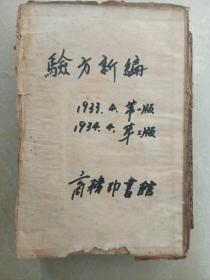 驗方新編
1933.4.第一版
1934.4.第二版
商務印書館